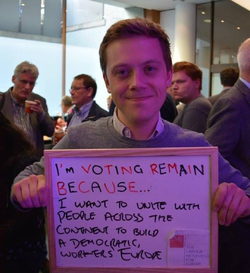 I'M VOTING REMAIN
BECAUSE...
I WANT TO UNITE WITH
PEOPLE ACROSS THE
CONTINENT TO BUILD
A DEMOCRATIC,
WORKERS' EUROPE